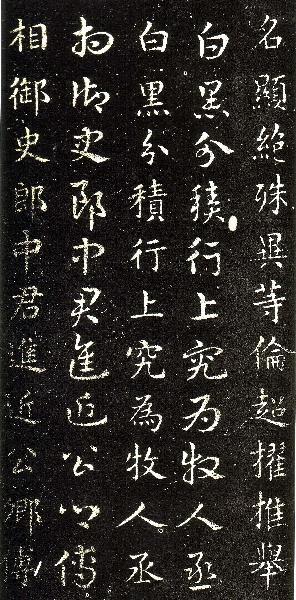 名顯絕殊異等倫超擢推舉
白黑分積行上究为牧人丞
白黑分積行上究為牧人丞
相御史郎中君進近公卿傅
相御史郎中君進近公卿傅